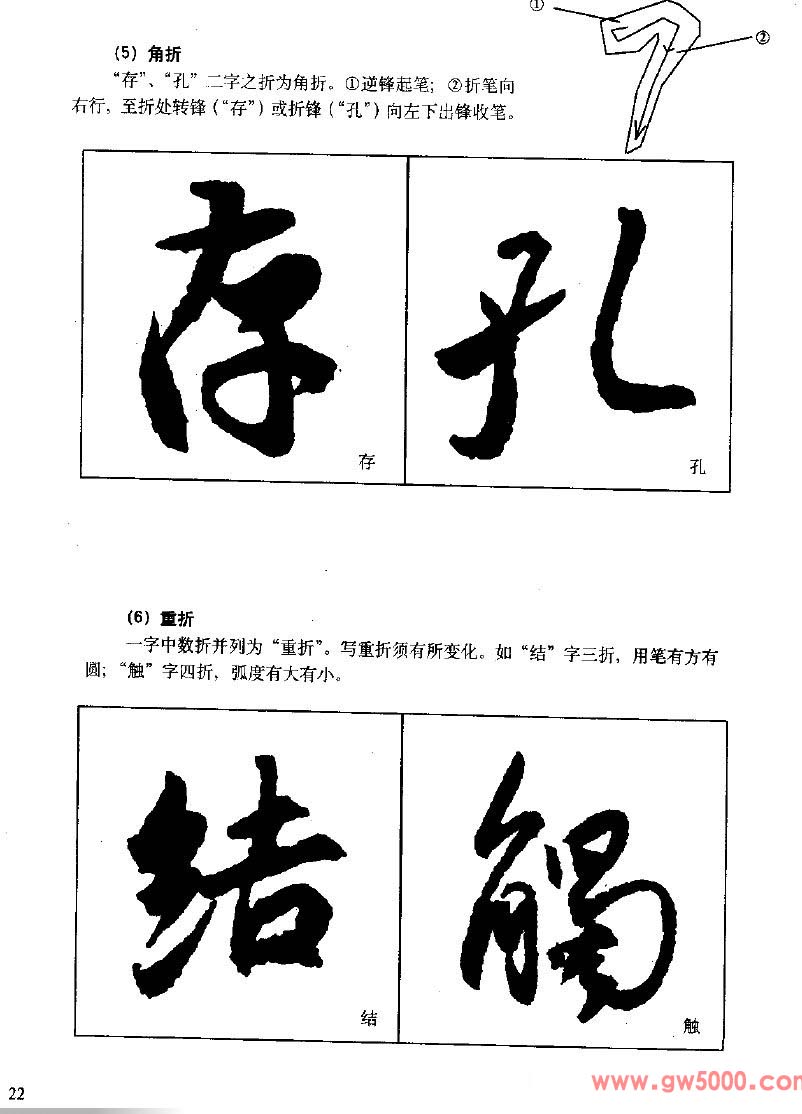 ①
②
(5) 角折
“存”、“孔”二字之折为角折。①逆锋起笔；②折笔向
右行，至折处转锋（“存”）或折锋（“孔”）向左下出锋收笔。
存 孔
存
孔
(6) 重折
一字中数折并列为“重折”。写重折须有所变化。如“结”字三折，用笔有方有
圆；“触”字四折，弧度有大有小。
结 觸
结
触
22
www.gw5000.com